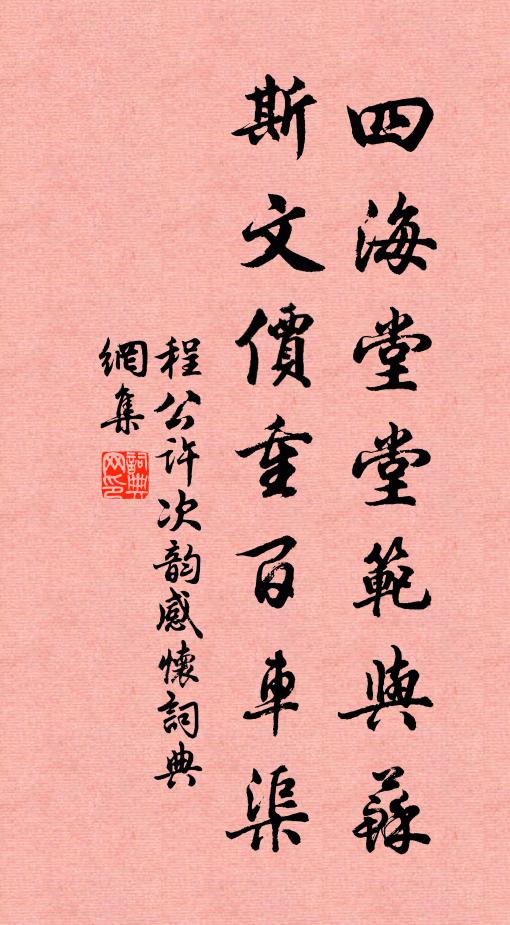 四海堂堂範與蘇
斯文價重百車渠
程公許次韵感懷詞典
網集
詞典
网印